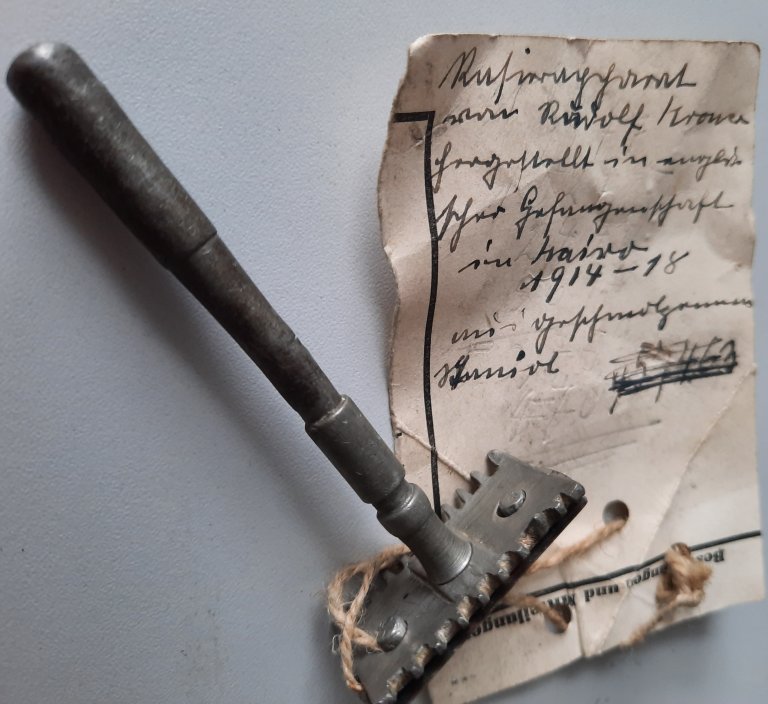 Rasierapparat
von Rudolf
hergestellt in engli-
scher Gefangenschaft
in Kairo
1914-18
aus geschmolzenem
Staniol
Bes und Mitteilungen